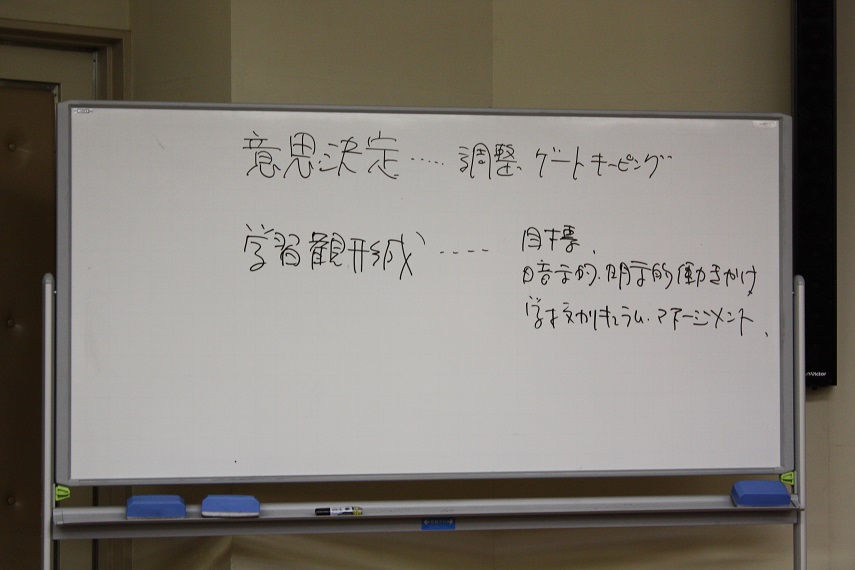 意思決定‥‥‥調整、ゲートキーピング
学習観形成‥‥目標、
暗示的、明示的働きかけ
学校カリキュラム・マネージメント、
Victor